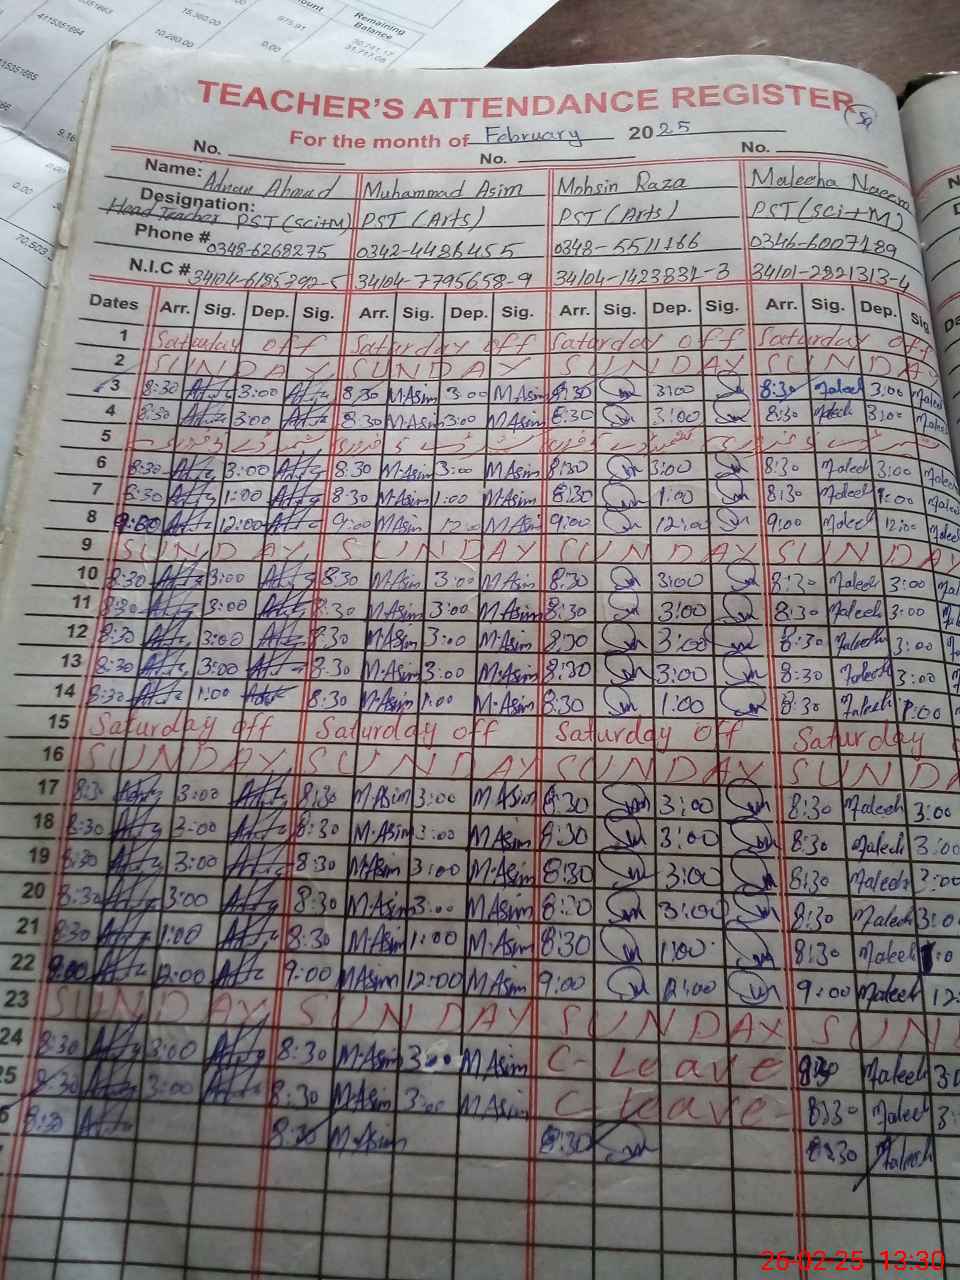 Amount
Remaining
Balance
15,360.00
975.91
10,280.00
0.00
TEACHER'S ATTENDANCE REGISTER
For the month of February 2025
No. No. No.
Name: Adnan Ahmad Muhammad Asim Mohsin Raza Maleeha Naeem
Designation:
Head Teacher PST (sci+M) PST (Arts) PST (Arts) PST (sci+M)
Phone # 0348-6268275 0342-4486455 0348-5511166 0346-6007189
N.I.C # 34104-6185792-5 34104-7795658-9 34104-1423831-3 34101-2821313-4
Dates Arr. Sig. Dep. Sig. Arr. Sig. Dep. Sig. Arr. Sig. Dep. Sig. Arr. Sig. Dep. Sig
1 Saturday off Saturday off Saturday off Saturday off
2 SUNDAY SUNDAY SUNDAY SUNDA
3 8:30 3:00 8:30 M.Asim 3:00 M.Asim 8:30 3:00 8:30 Maleeh 3:00
4 8:30 3:00 8:30 M.Asim 3:00 M.Asim 8:30 3:00 8:30 Maleeh 3:00
5
6 8:30 3:00 8:30 M.Asim 3:00 M.Asim 8:30 3:00 8:30 Maleeh 3:00
7 8:30 1:00 8:30 M.Asim 1:00 M.Asim 8:30 1:00 8:30 Maleeh 1:00
8 9:00 12:00 9:00 M.Asim 12:00 M.Asim 9:00 12:00 9:00 Maleeh 12:00
9 SUNDAY SUNDAY SUNDAY SUNDAY
10 8:30 3:00 8:30 M.Asim 3:00 M.Asim 8:30 3:00 8:30 Maleeh 3:00
11 8:30 3:00 8:30 M.Asim 3:00 M.Asim 8:30 3:00 8:30 Maleeh 3:00
12 8:30 3:00 8:30 M.Asim 3:00 M.Asim 8:30 3:00 8:30 Maleeh 3:00
13 8:30 3:00 8:30 M.Asim 3:00 M.Asim 8:30 3:00 8:30 Maleeh 3:00
14 8:30 1:00 8:30 M.Asim 1:00 M.Asim 8:30 1:00 8:30 Maleeh 1:00
15 Saturday off Saturday off Saturday off Saturday
16 SUNDAY SUNDAY SUNDAY SUNDA
17 8:30 3:00 8:30 M.Asim 3:00 M.Asim 8:30 3:00 8:30 Maleeh 3:00
18 8:30 3:00 8:30 M.Asim 3:00 M.Asim 8:30 3:00 8:30 Maleeh 3:00
19 8:30 3:00 8:30 M.Asim 3:00 M.Asim 8:30 3:00 8:30 Maleeh 3:00
20 8:30 3:00 8:30 M.Asim 3:00 M.Asim 8:30 3:00 8:30 Maleeh 3:0
21 8:30 1:00 8:30 M.Asim 1:00 M.Asim 8:30 1:00 8:30 Maleeh
22 9:00 12:00 9:00 M.Asim 12:00 M.Asim 9:00 12:00 9:00 Maleeh 12:
23 SUNDAY SUNDAY SUNDAY SUN
24 8:30 3:00 8:30 M.Asim 3:00 M.Asim C-Leave 8:30 Maleeh 30
25 8:30 3:00 8:30 M.Asim 3:00 M.Asim C-leave 8:30 Maleeh 3:
8:30 8:30 M.Asim 8:30 8:30 Maleeh
26-02-25 13:30